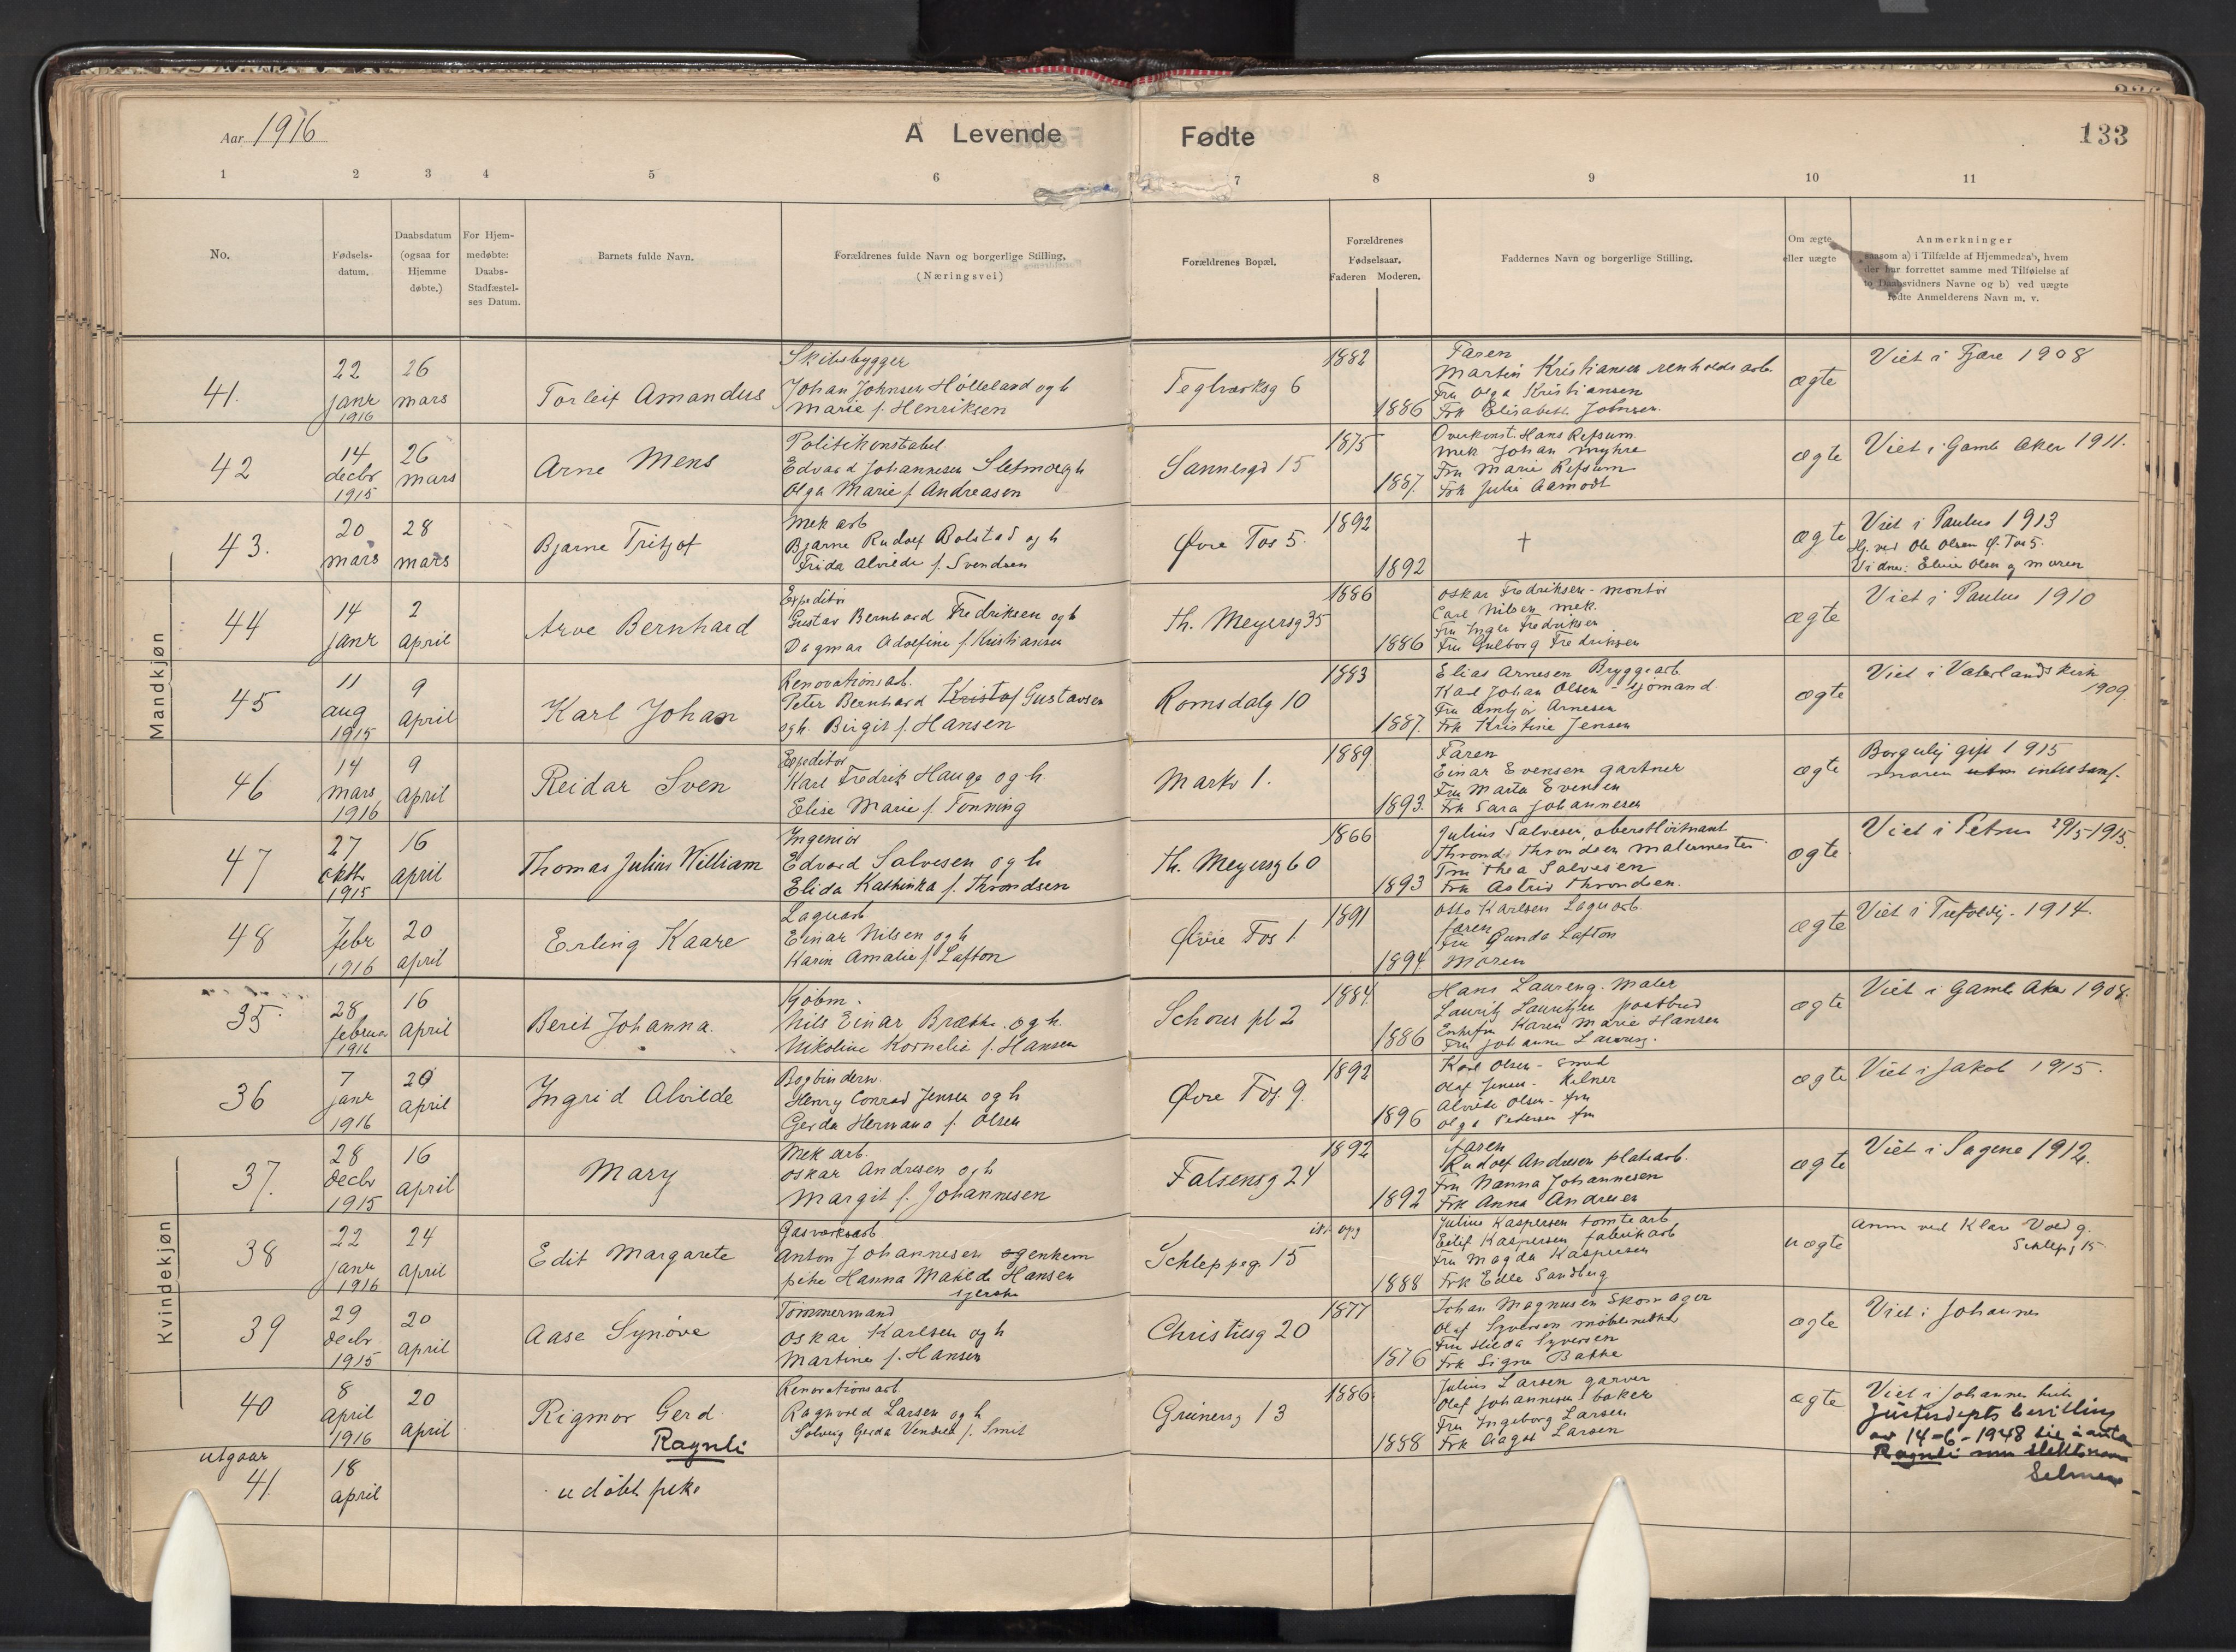 Aar 1916
A Levende Fødte
133
1 2 3 4 5 6 7 8 9 10 11
No.
Fødsels-
datum.
Daabsdatum
(ogsaa for
Hjemme
døbte.)
For Hjem-
medøbte:
Daabs-
Stadfæstel-
ses Datum.
Barnets fulde Navn.
Forældrenes fulde Navn og borgerlige Stilling.
(Næringsvei)
Forældrenes Bopæl.
Forældrenes
Fødselsaar.
Faderen Moderen.
Faddernes Navn og borgerlige Stilling.
Om ægte
eller uægte
Anmerkninger
saasom a) i Tilfælde af Hjemmedaab, hvem
der har forrettet samme med Tilføielse af
to Daabsvidners Navne og b) ved uægte
fødte Anmelderens Navn m. v.
Mandkjøn
41.
22
janr
1916
26
mars
Torleif Amandus
Skibsbygger
Johan Johnsen Hølleland og h
Marie f. Henriksen
Teglverksg 6
1882
1886
Faren
Martin Kristiansen renholdsarb
Fru Olga Kristiansen
Frk Elisabeth Johnsen.
ægte
Viet i Fjære 1908
42
14
decbr
1915
26
mars
Arne Mens
Politikonstabel
Edvard Johannesen Sletmo og h
Olga Marie f. Andreasen
Sannergd 15
1875
1887.
Overkonst. Hans Refsum
Mek Johan Myhre
Fru Marie Refsum
Frk Julie Aamodt
ægte
Viet i Gamle Aker 1911.
43.
20
mars
28
mars
Bjarne Fritjof
Mek arb
Bjarne Rudolf Bolstad og h
Frida Alvilde f. Svendsen
Øvre Fos 5.
1892
1892
†
ægte
Viet i Paulus 1913
Hj. ved Ole Olsen Ø. Fos 5.
Vidne: Elvie Olsen og moren
44
14
janr
2
april
Arve Bernhard
Expeditør
Gustav Bernhard Fredriksen og h
Dagmar Adolfine f. Kristiansen
Th. Meyersg 35
1886
1886
Oskar Fredriksen - montør
Carl Nilsen mek.
Fru Inger Fredriksen
Fru Gulborg Fredriksen
ægte
Viet i Paulus 1910
45
11
aug
1915
9
april
Karl Johan
Renovationsarb.
Peter Bernhard Kristof Gustavsen
og h. Birgit f. Hansen
Romsdalg 10
1883
1887.
Elias Arnesen Bryggearb
Karl Johan Olsen - sjømand
Fru Ambjør Arnesen
Frk Kristine Jensen
ægte
Viet i Vaterlands kirke
1909.
46
14
mars
1916
9
april
Reidar Sven
Expeditør
Karl Fredrik Hauge og h.
Elise Marie f. Tonning
Markv 1.
1889
1893.
Faren
Einar Evensen gartner
Fru Marta Evensen
Frk Sara Johannesen
ægte
Borgerlig gift 1915
moren utm intet samf.
47
27
oktbr
1915
16
april
Thomas Julius William
Ingeniør
Edvard Salvesen og h
Elida Kathinka f. Throndsen
Th. Meyersg 60
1866
1893
Julius Salvesen, oberstløitnant
Thrond Throndsen malermester
Fru Thea Salvesen
Frk Astrid Throndsen.
ægte
Viet i Petrus 29/5-1915.
48
7
febr
1916
20
april
Erling Kaare
Lagerarb
Einar Nilsen og h
Karen Amalie f. Lafton
Øvre Fos 1.
1891
1894.
Otto Karlsen Lagerarb.
faren
Fru Gunda Lafton
Moren
ægte
Viet i Trefoldig. 1914.
Kvindekjøn
35.
28
februar
1916
16
april
Berit Johanna.
Kjøbm.
Nils Einar Brække. og h.
Nikoline Kornelia f. Hansen
Schous pl 2
1884.
1886
Hans Laureng. Maler
Lauritz Lauritzen postbud
Enkefru Karen Marie Hansen
Fru Johanne Laureng.
ægte
Viet i Gamle Aker 1908.
36
7
janr
1916
20
april
Ingrid Alvilde
Bogbindersv.
Henry Conrad Jensen og h
Gerda Hermana f. Olsen
Øvre Fos. 9.
1892
1896
Karl Olsen - smed
Olaf Jensen - Kelner
Alvilde Olsen - fru
Olga Pedersen fru
ægte
Viet i Jakob 1915.
37.
28
decbr
1915
16
april
Mary
Mek arb.
Oskar Andresen og h
Margit f. Johannesen
Falsensg 24
1892
1892
faren
Rudolf Andresen platearb.
Fru Nanna Johannesen
Frk Anna Andresen
ægte
Viet i Sagene 1912.
38
22
janr
1916
24
april
Edit Margarete
Gasverksarb
Anton Johannesen og enkem
pike Hanna Matilde Hansen
Schleppeg. 15
ikke opg
1888
Julius Kaspersen tomtearb
Eilif Kaspersen fabrikarb
Fru Magda Kaspersen
Frk Edle Sandberg
uægte
Anm ved Klara Vold g.
Schlep, 15
39
29
decbr
1915
20
april
Aase Synøve
Tømmermand
Oskar Karlsen og h
Martine f. Hansen
Christiesg 20
1877
1876
Johan Magnusen Skomager
Olaf Syversen møbelsnekker
Fru Hilda Syversen
Frk Signe Bakke
ægte
Viet i Johannes
40
8
april
1916
20
april
Rigmor Gerd
Ragnli
Renovationsarb.
Ragnvald Larsen og h
Solveig Gerda Vendla f. Smit
Grünersg 13
1886.
1888
Julius Larsen garver
Olaf Johannesen baker
Fru Ingeborg Larsen
Frk Aagot Larsen
ægte
Viet i Johannes kirke
Justisdepts bevilling
av 14-6-1948 til å anta
Ragnli som slektsnavn
utgaar
41.
18
april
udøbt pike